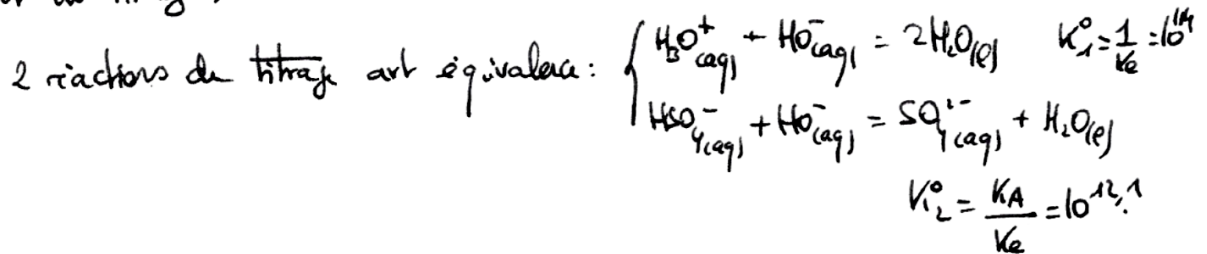 2 réactions du titrage avt équivalence : { H₃O⁺(aq) + HO⁻(aq) = 2H₂O(l) K°₁ = 1/Ke = 10¹⁴
HSO₄⁻(aq) + HO⁻(aq) = SO₄²⁻(aq) + H₂O(l)
K°₂ = KA/Ke = 10¹²·¹